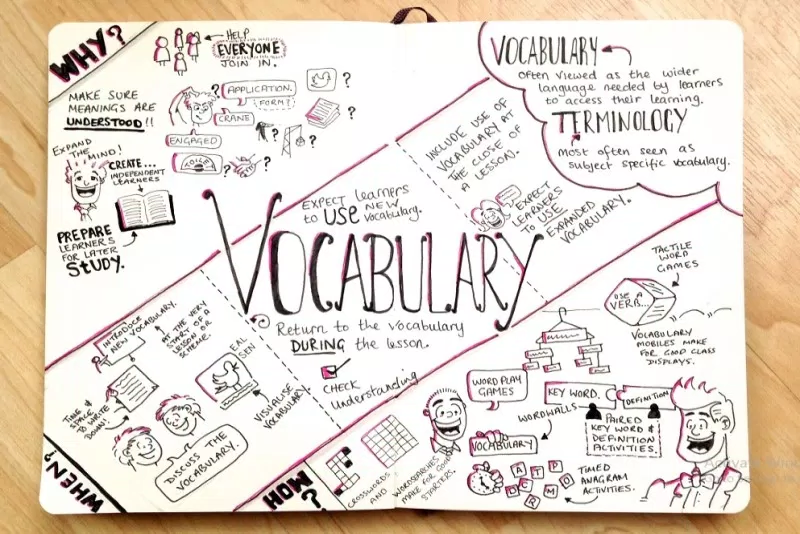 WHY?
HELP
EVERYONE
JOIN IN.
MAKE SURE
MEANINGS ARE
UNDERSTOOD!!
?
APPLICATION.
FORM?
CRANE
ENGAGED
?
?
?
?
?
EXPAND
THE MIND!
CREATE...
INDEPENDENT
LEARNERS
PREPARE
LEARNERS
FOR LATER
STUDY.
VOCABULARY
Often viewed as the wider
language needed by learners
to access their learning.
TERMINOLOGY
Most often seen as
subject specific vocabulary.
INCLUDE USE OF
VOCABULARY AT
THE CLOSE OF
A LESSON.
EXPECT
LEARNERS
TO USE
EXPANDED
VOCABULARY.
EXPECT learners
to USE NEW
vocabulary.
VOCABULARY
Return to the vocabulary
DURING the lesson.
CHECK
Understanding
INTRODUCE
NEW VOCABULARY.
AT THE VERY
START OF A
LESSON OR
SCHEME.
TIME &
SPACE
TO WRITE
DOWN!
EAL
SEN
VISUALISE
VOCABULARY.
DISCUSS THE
VOCABULARY.
WHEN?
HOW?
CROSSWORDS
AND
WORDSEARCHES
MAKE FOR GOOD
STARTERS.
WORD PLAY
GAMES
WORDWALLS
VOCABULARY
TIMED
ANAGRAM
ACTIVITIES.
KEY WORD.
DEFINITION
PAIRED
KEY WORD &
DEFINITION
ACTIVITIES.
TACTILE
WORD
GAMES
USE A
VERB...
VOCABULARY
MOBILES MAKE
FOR GOOD CLASS
DISPLAYS.